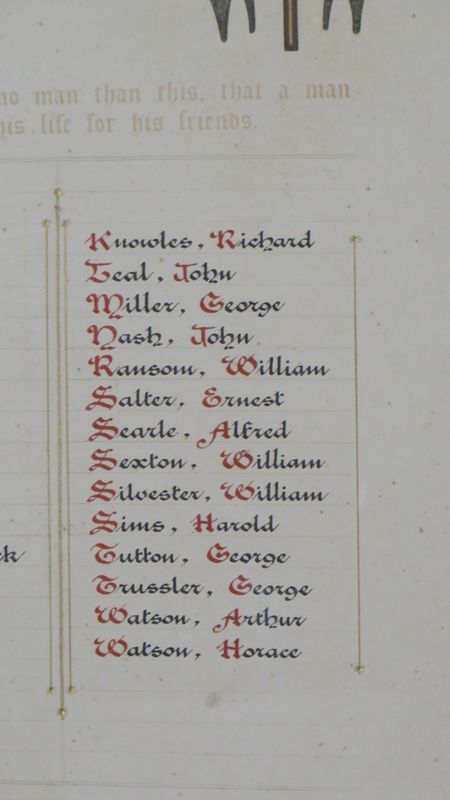 no man than this, that a man
his life for his friends.
Knowles, Richard
Leal, John
Miller, George
Nash, John
Ransom, William
Salter, Ernest
Searle, Alfred
Sexton, William
Silvester, William
Sims, Harold
ck
Tutton, George
Trussler, George
Watson, Arthur
Watson, Horace